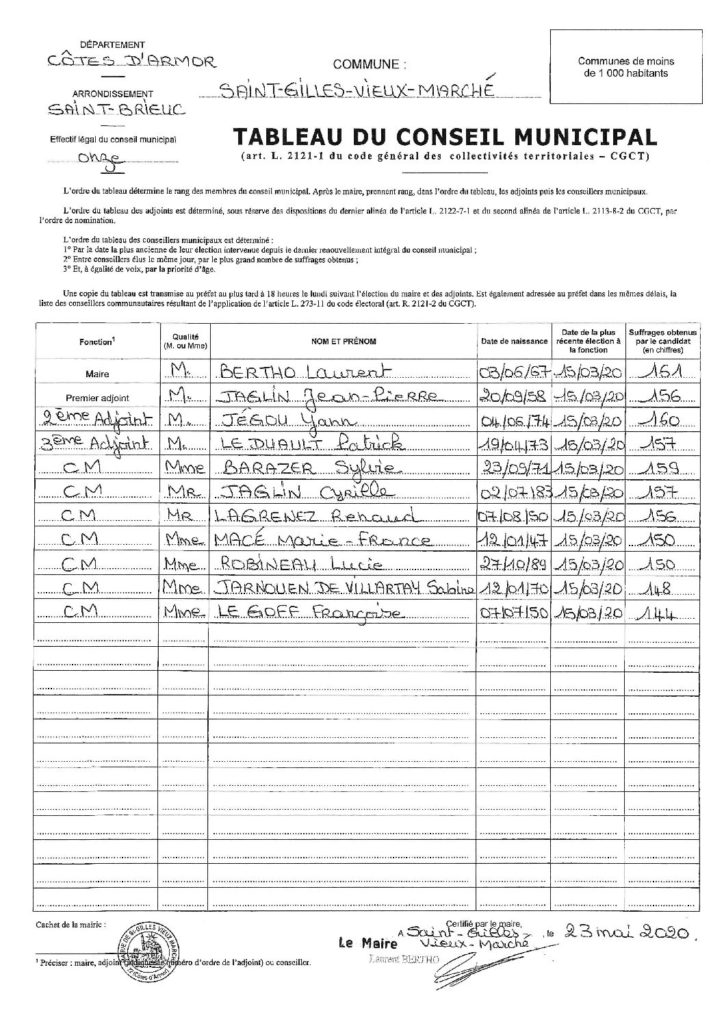 DÉPARTEMENT
CÔTES D'ARMOR
COMMUNE :
Communes de moins
de 1 000 habitants
ARRONDISSEMENT
SAINT-BRIEUC
SAINT-GILLES-VIEUX-MARCHÉ
Effectif légal du conseil municipal
onze
TABLEAU DU CONSEIL MUNICIPAL
(art. L. 2121-1 du code général des collectivités territoriales – CGCT)
L'ordre du tableau détermine le rang des membres du conseil municipal. Après le maire, prennent rang, dans l'ordre du tableau, les adjoints puis les conseillers municipaux.
L'ordre du tableau des adjoints est déterminé, sous réserve des dispositions du dernier alinéa de l'article L. 2122-7-1 et du second alinéa de l'article L. 2113-8-2 du CGCT, par
l'ordre de nomination.
L'ordre du tableau des conseillers municipaux est déterminé :
1° Par la date la plus ancienne de leur élection intervenue depuis le dernier renouvellement intégral du conseil municipal ;
2° Entre conseillers élus le même jour, par le plus grand nombre de suffrages obtenus ;
3° Et, à égalité de voix, par la priorité d'âge.
Une copie du tableau est transmise au préfet au plus tard à 18 heures le lundi suivant l'élection du maire et des adjoints. Est également adressée au préfet dans les mêmes délais, la
liste des conseillers communautaires résultant de l'application de l'article L. 273-11 du code électoral (art. R. 2121-2 du CGCT).
Fonction¹ Qualité (M. ou Mme) NOM ET PRÉNOM Date de naissance Date de la plus récente élection à la fonction Suffrages obtenus par le candidat (en chiffres)
Maire M. BERTHO Laurent 03/06/67 15/03/20 161
Premier adjoint M. JAGLIN Jean-Pierre 20/09/58 15/03/20 156
2ème Adjoint M. JÉGOU Yann 04/06/74 15/03/20 160
3ème Adjoint M. LE DUAULT Patrick 19/04/73 15/03/20 157
CM Mme BARAZER Sylvie 23/09/71 15/03/20 159
CM MR JAGLIN Cyrille 02/07/83 15/03/20 157
CM MR LAGRENEZ Renaud 07/08/50 15/03/20 156
CM Mme MACÉ Marie-France 12/01/47 15/03/20 150
CM Mme ROBINEAU Lucie 27/10/89 15/03/20 150
CM Mme JARNOUEN DE VILLARTAY Sabine 12/01/70 15/03/20 148
CM Mme LE GOFF Françoise 07/07/50 15/03/20 144
Cachet de la mairie :
Certifié par le maire,
A Saint-Gilles- , le 23 mai 2020.
Le Maire Vieux-Marché
Laurent BERTHO
¹ Préciser : maire, adjoint d'ordre de l'adjoint) ou conseiller.